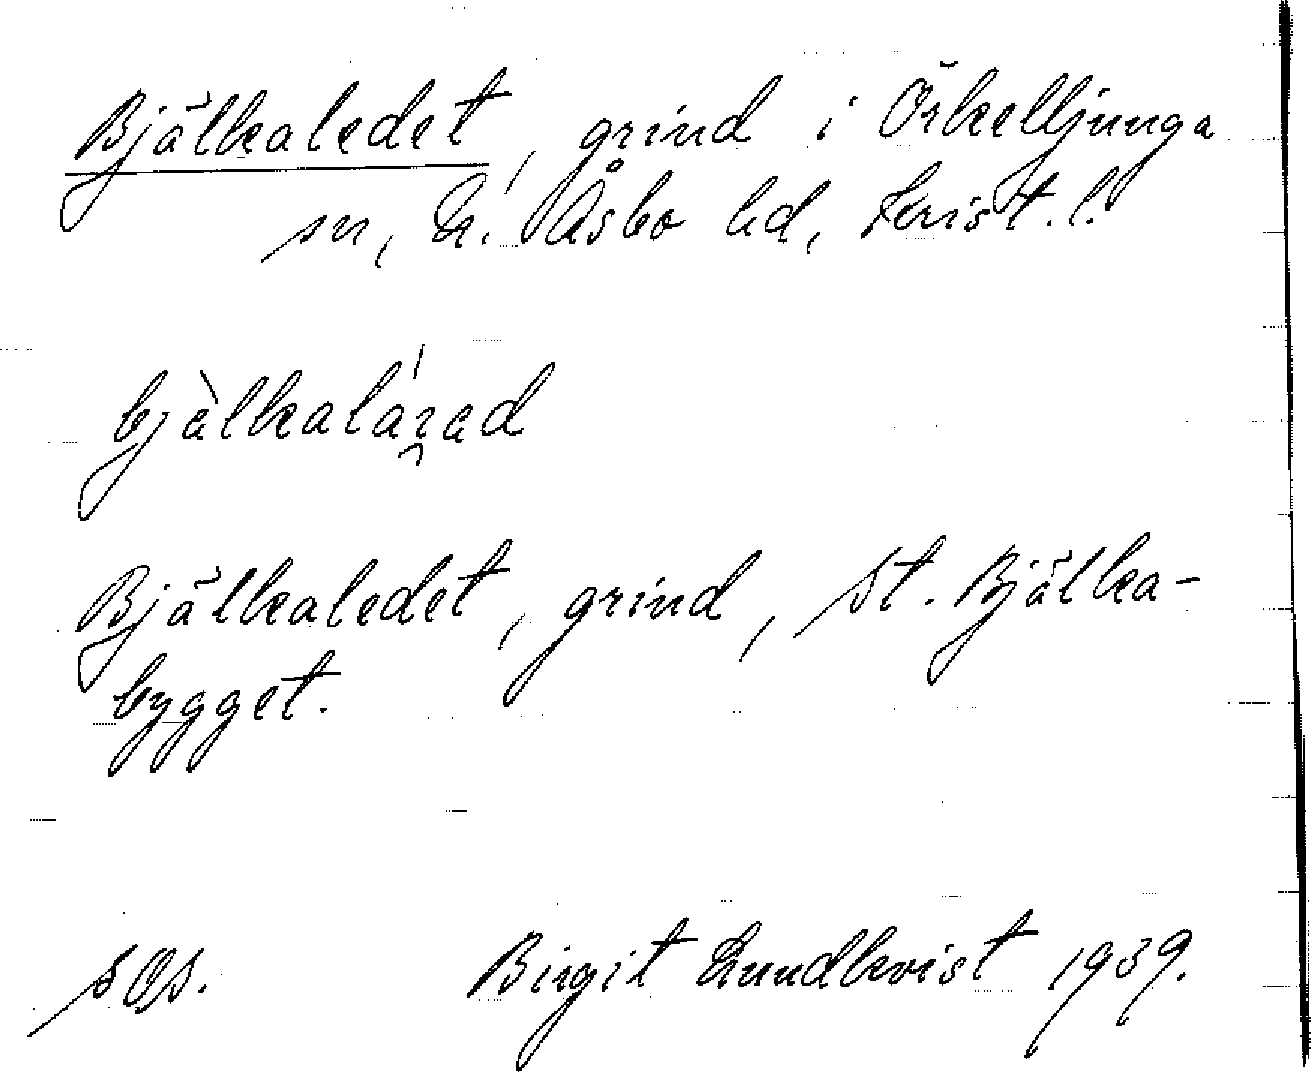 Bjälkaledet, grind i Örkelljunga
sn, N. Åsbo hd, Krist. l.
bjàlkaláʒad
Bjälkaledet, grind, St. Bjälka-
bygget.
sOs. Birgit Lundkvist 1939.